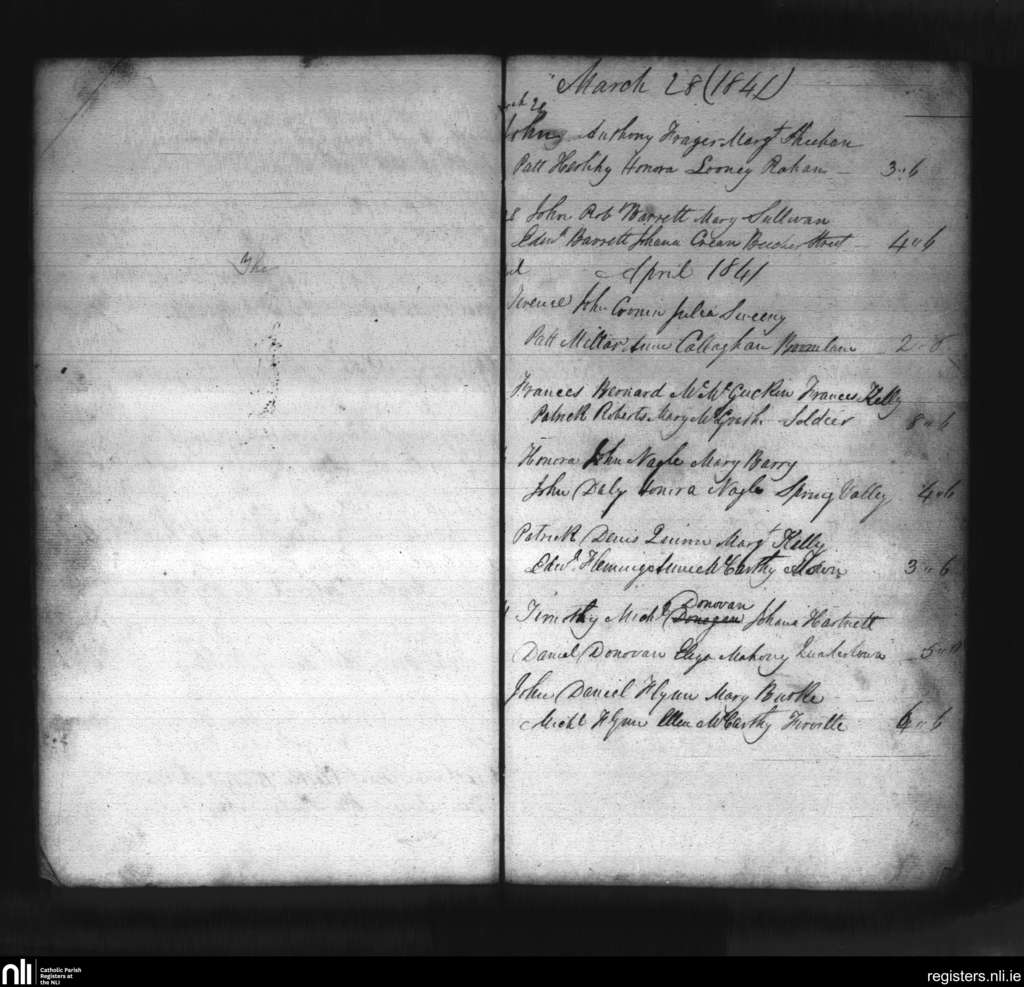 The
March 28 (1841)
John Anthony Frazer Margt Sheehan
Patt Honora Looney Rahan 3 " 6
John Robt Barrett Mary Sullivan
Edwd Barrett Johana Crean Beecher Street 4 " 6
April 1841
Terence John Cronin Julia Sweeny
Patt Millar Anne Callaghan 2 "
Frances Bernard McGuckin Frances Kelly
Patrick Roberts Mary McGrath Soldier 8 " 6
Honora John Nagle Mary Barry
John Daly Honora Nagle Spring Valley 4 " 6
Patrick Denis Quinn Margt Kelly
Edwd Fleming Anne McCarthy 3 " 6
Donovan
Timothy Michl Donogan Johana Hartnett
Daniel Donovan Eliza Mahony Quartertown 5 "
John Daniel Flynn Mary Burke
Michl Flynn Ellen McCarthy Firville 6 " 6
nli Catholic Parish
Registers at
the NLI
registers.nli.ie